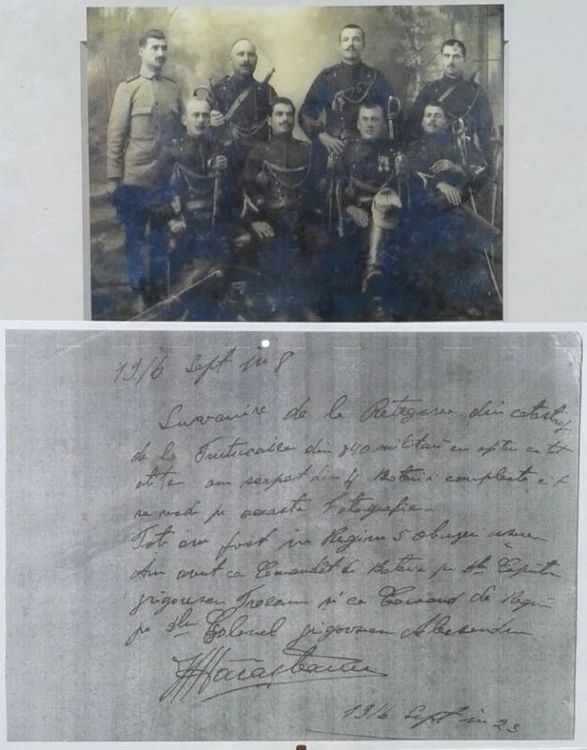 1916 Sept in 8
Suvanire de la Retegere din catastrof
de la Turtucaire din 840 militari cu optu ca tot
atite am scapat din 4 Baterii complecte cit
se vede pe aceasta Fotografie
Toti am fost in Regimu 5 obuzere usuare
Am avut ca Comandat de Baterie pe Dlu Capitan
grigorescu Traean si ca Comand de Regim
pe Dlu Colonel grigorescu Alecsandru
1916 Sept in 23